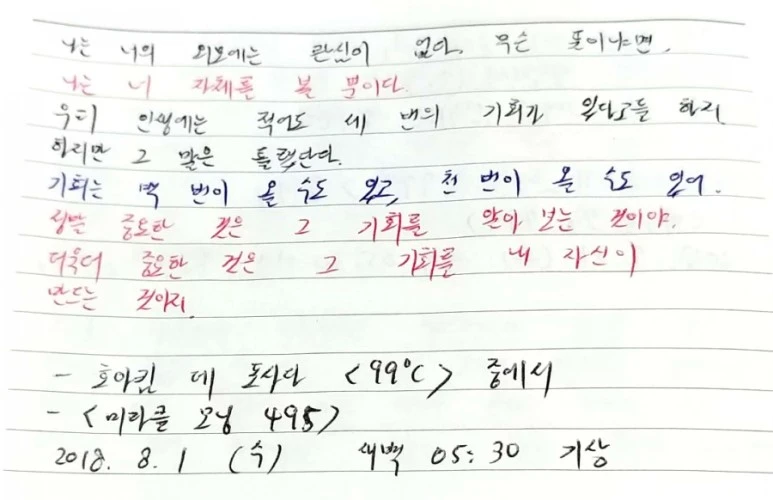 나는 너의 외모에는 관심이 없다. 무슨 뜻이냐면,
나는 너 자체를 볼 뿐이다.
우리 인생에는 적어도 세 번의 기회가 있다고들 하지
하지만 그 말은 틀렸단다.
기회는 백 번이 올 수도 있고, 천 번이 올 수도 있어.
정말 중요한 것은 그 기회를 알아 보는 것이야.
더욱더 중요한 건은 그 기회를 내 자신이
만드는 것이지.
- 호아킴 데 포사다 <99℃> 중에서
- <미라클 모닝 495>
2018. 8. 1 (수) 새벽 05:30 기상